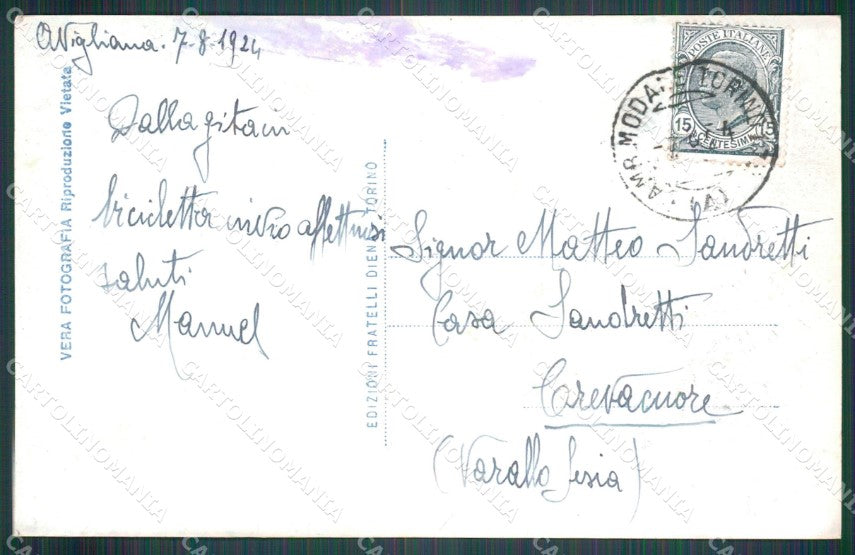 Avigliana. 7-8-1924
Dalla gita in
bicicletta invio affettuosi
saluti
Manuel
VERA FOTOGRAFIA Riproduzione Vietata
EDIZIONI FRATELLI DIENA TORINO
POSTE ITALIANE
15 15
CENTESIMI
AMB. MODANE TORINO
Signor Matteo Sandretti
Casa Sandretti
Crevacuore
(Varallo Sesia)
CARTOLINOMANIA